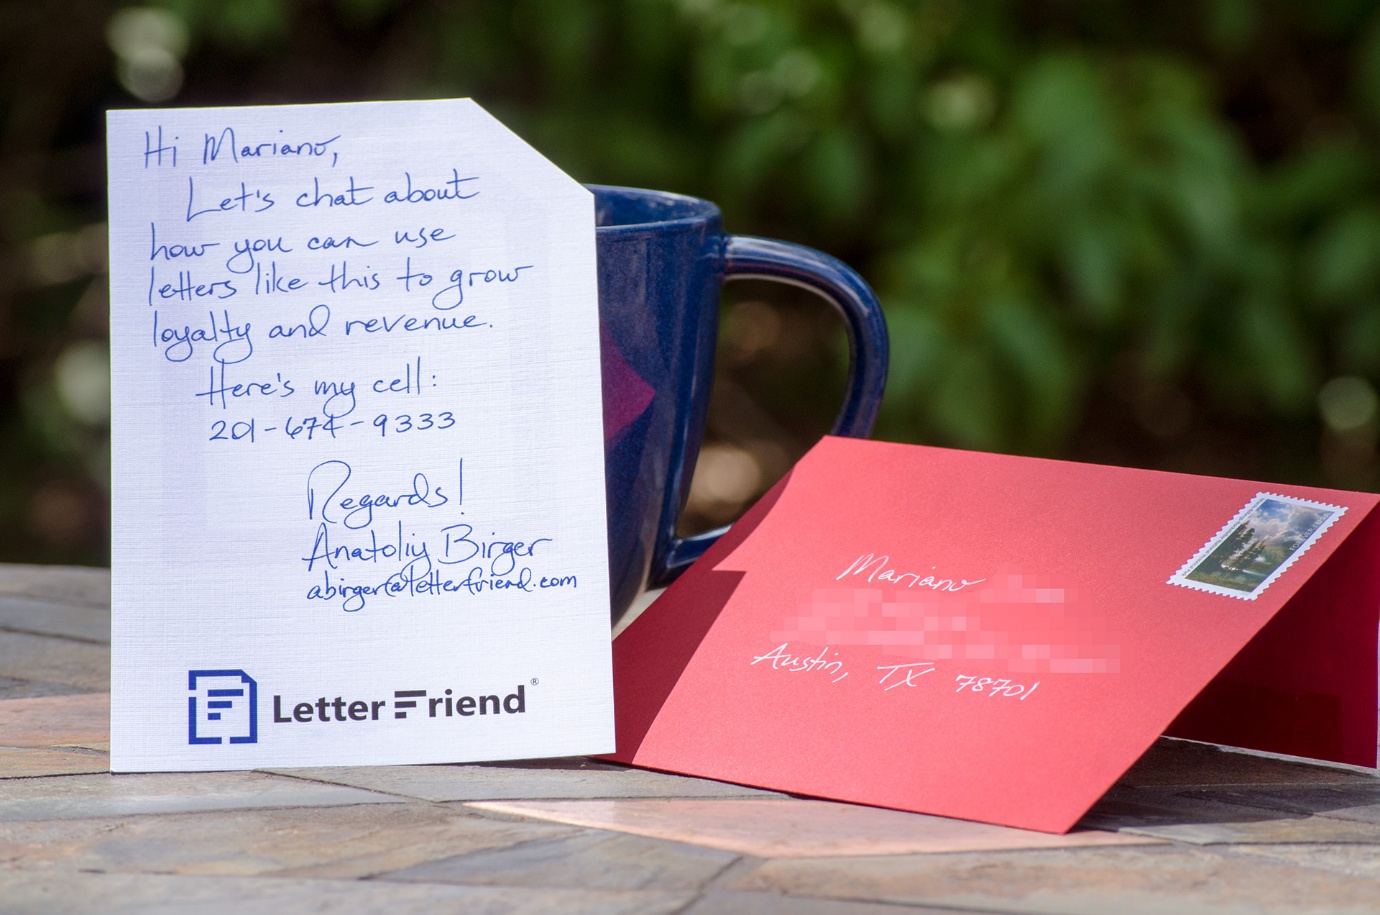 Hi Mariano,
Let's chat about
how you can use
letters like this to grow
loyalty and revenue.
Here's my cell:
201-674-9333
Regards!
Anatoliy Birger
abirger@letterfriend.com
Letter Friend®
Mariano
Austin, TX 78701